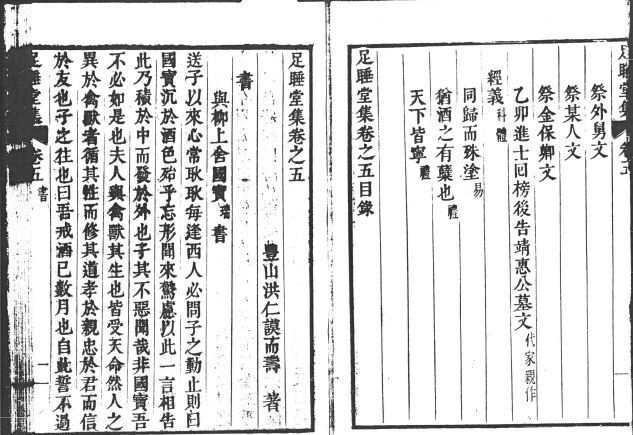 足睡堂集 卷五
祭外舅文
祭某人文
祭金保卿文
乙卯進士回榜後告靖惠公墓文 代家親作
經義 科體
同歸而殊塗 易
猶酒之有糵也 禮
天下皆寧 禮
足睡堂集卷之五目錄
足睡堂集卷之五
豐山洪仁謨而壽 著
書
與柳上舍國寶 書
送子以來心常耿耿每逢西人必問子之動止則曰
國寶沉於酒色殆乎忘形聞來驚慮以此一言相告
此乃積於中而發於外也子其不惡聞哉非國寶吾
不必如是也夫人與禽獸其生也皆受天命然人之
異於禽獸者循其性而修其道孝於親忠於君而信
於友也子之往也曰吾戒酒已數月也自此誓不過
足睡堂集 卷五 書 一